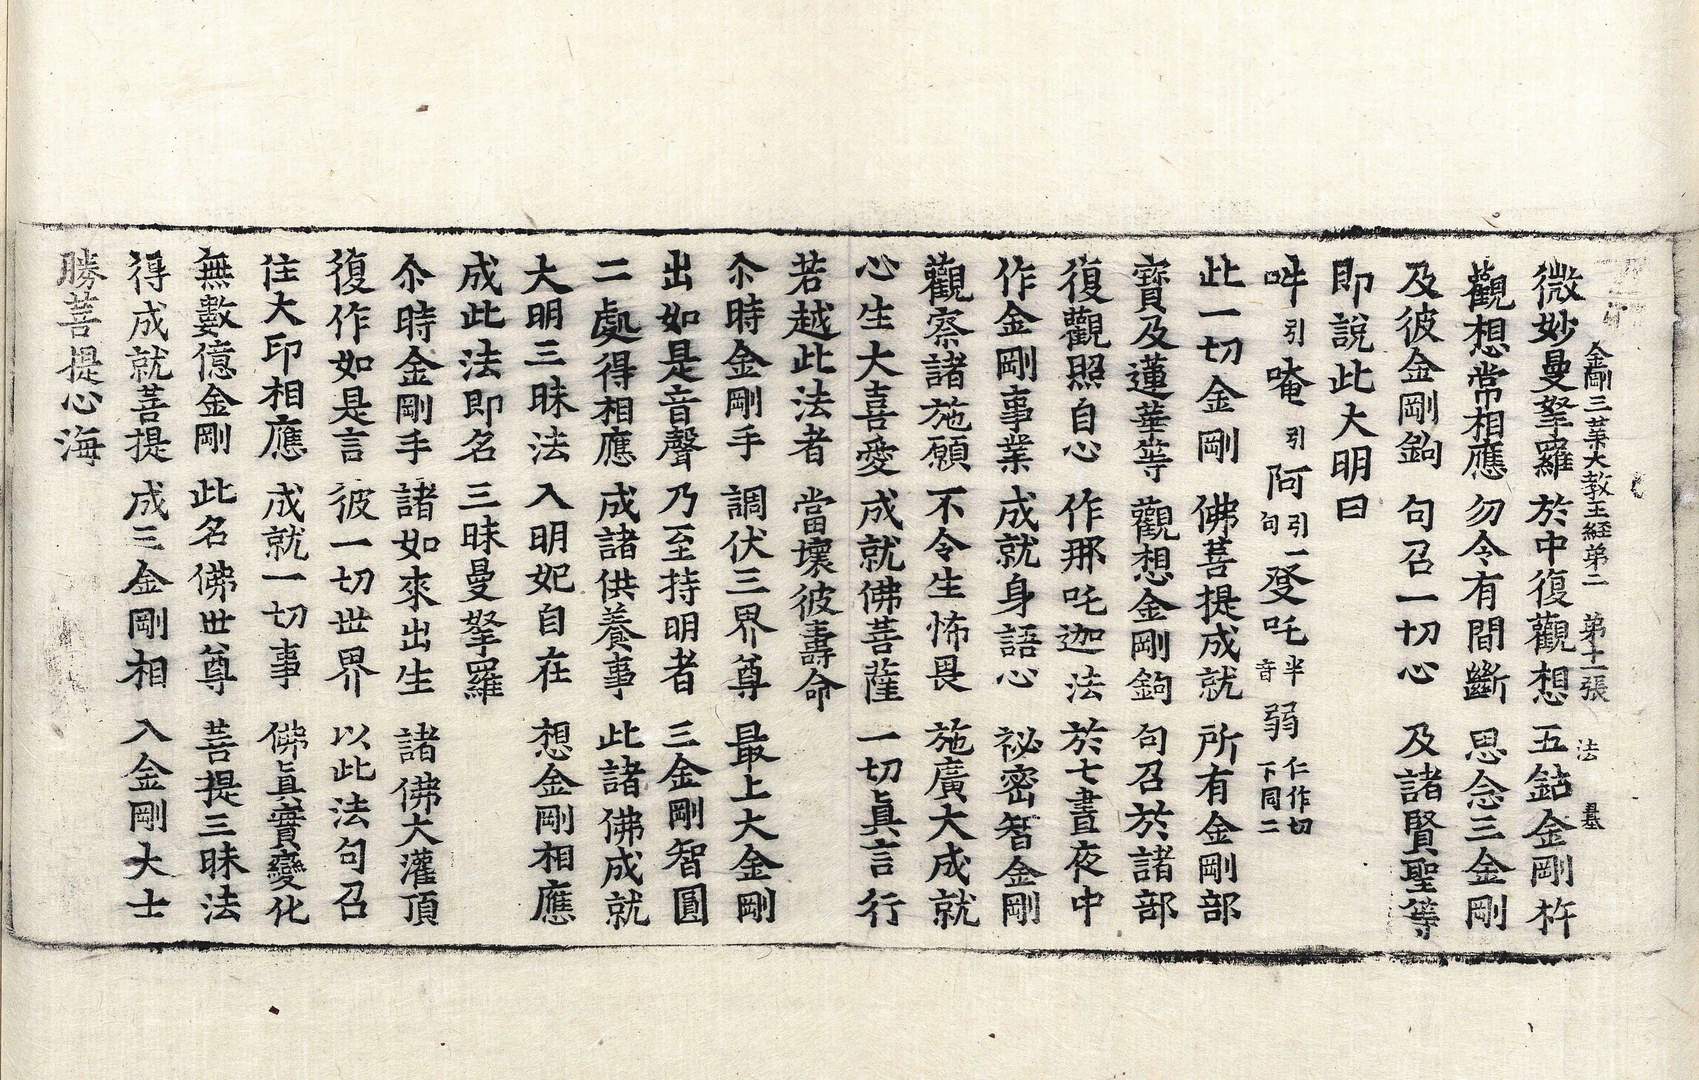 金剛三業大教王經第二 第十一張 法
微妙曼拏羅 於中復觀想 五鈷金剛杵
觀想常相應 勿令有間斷 思念三金剛
及彼金剛鉤 句召一切心 及諸賢聖等
即說此大明曰
吽引唵引阿引一句發吒半音弱仁作切下同二
此一切金剛 佛菩提成就 所有金剛部
寶及蓮華等 觀想金剛鉤 句召於諸部
復觀照自心 作那吒迦法 於七晝夜中
作金剛事業 成就身語心 祕密智金剛
觀察諸施願 不令生怖畏 施廣大成就
心生大喜愛 成就佛菩薩 一切眞言行
若越此法者 當壞彼壽命
尒時金剛手 調伏三界尊 最上大金剛
出如是音聲 乃至持明者 三金剛智圓
二處得相應 成諸供養事 此諸佛成就
大明三昧法 入明妃自在 想金剛相應
成此法即名 三昧曼拏羅
尒時金剛手 諸如來出生 諸佛大灌頂
復作如是言 彼一切世界 以此法句召
住大印相應 成就一切事 佛眞實變化
無數億金剛 此名佛世尊 菩提三昧法
得成就菩提 成三金剛相 入金剛大士
勝菩提心海